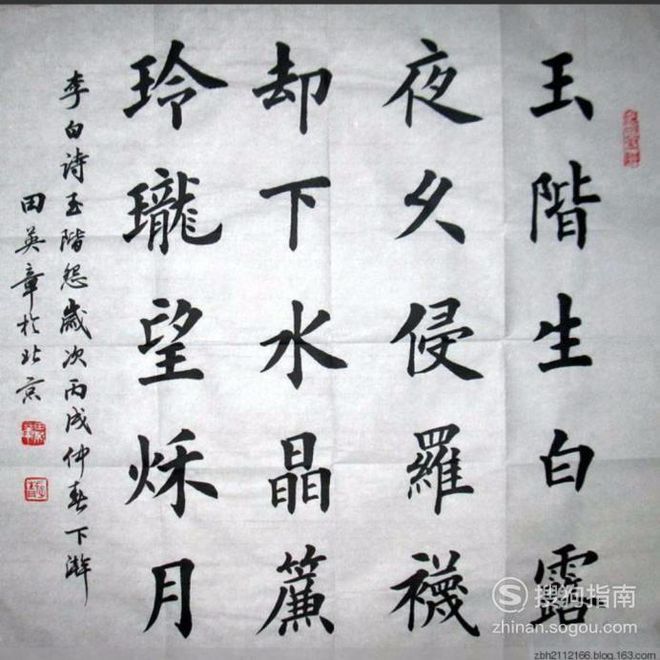 玉階生白露
夜久侵羅襪
却下水晶簾
玲瓏望秌月
李白詩玉階怨歲次丙戌仲春下澣
田英章於北京
搜狗指南
zhinan.sogou.com
zbh2112166.blog.163.com